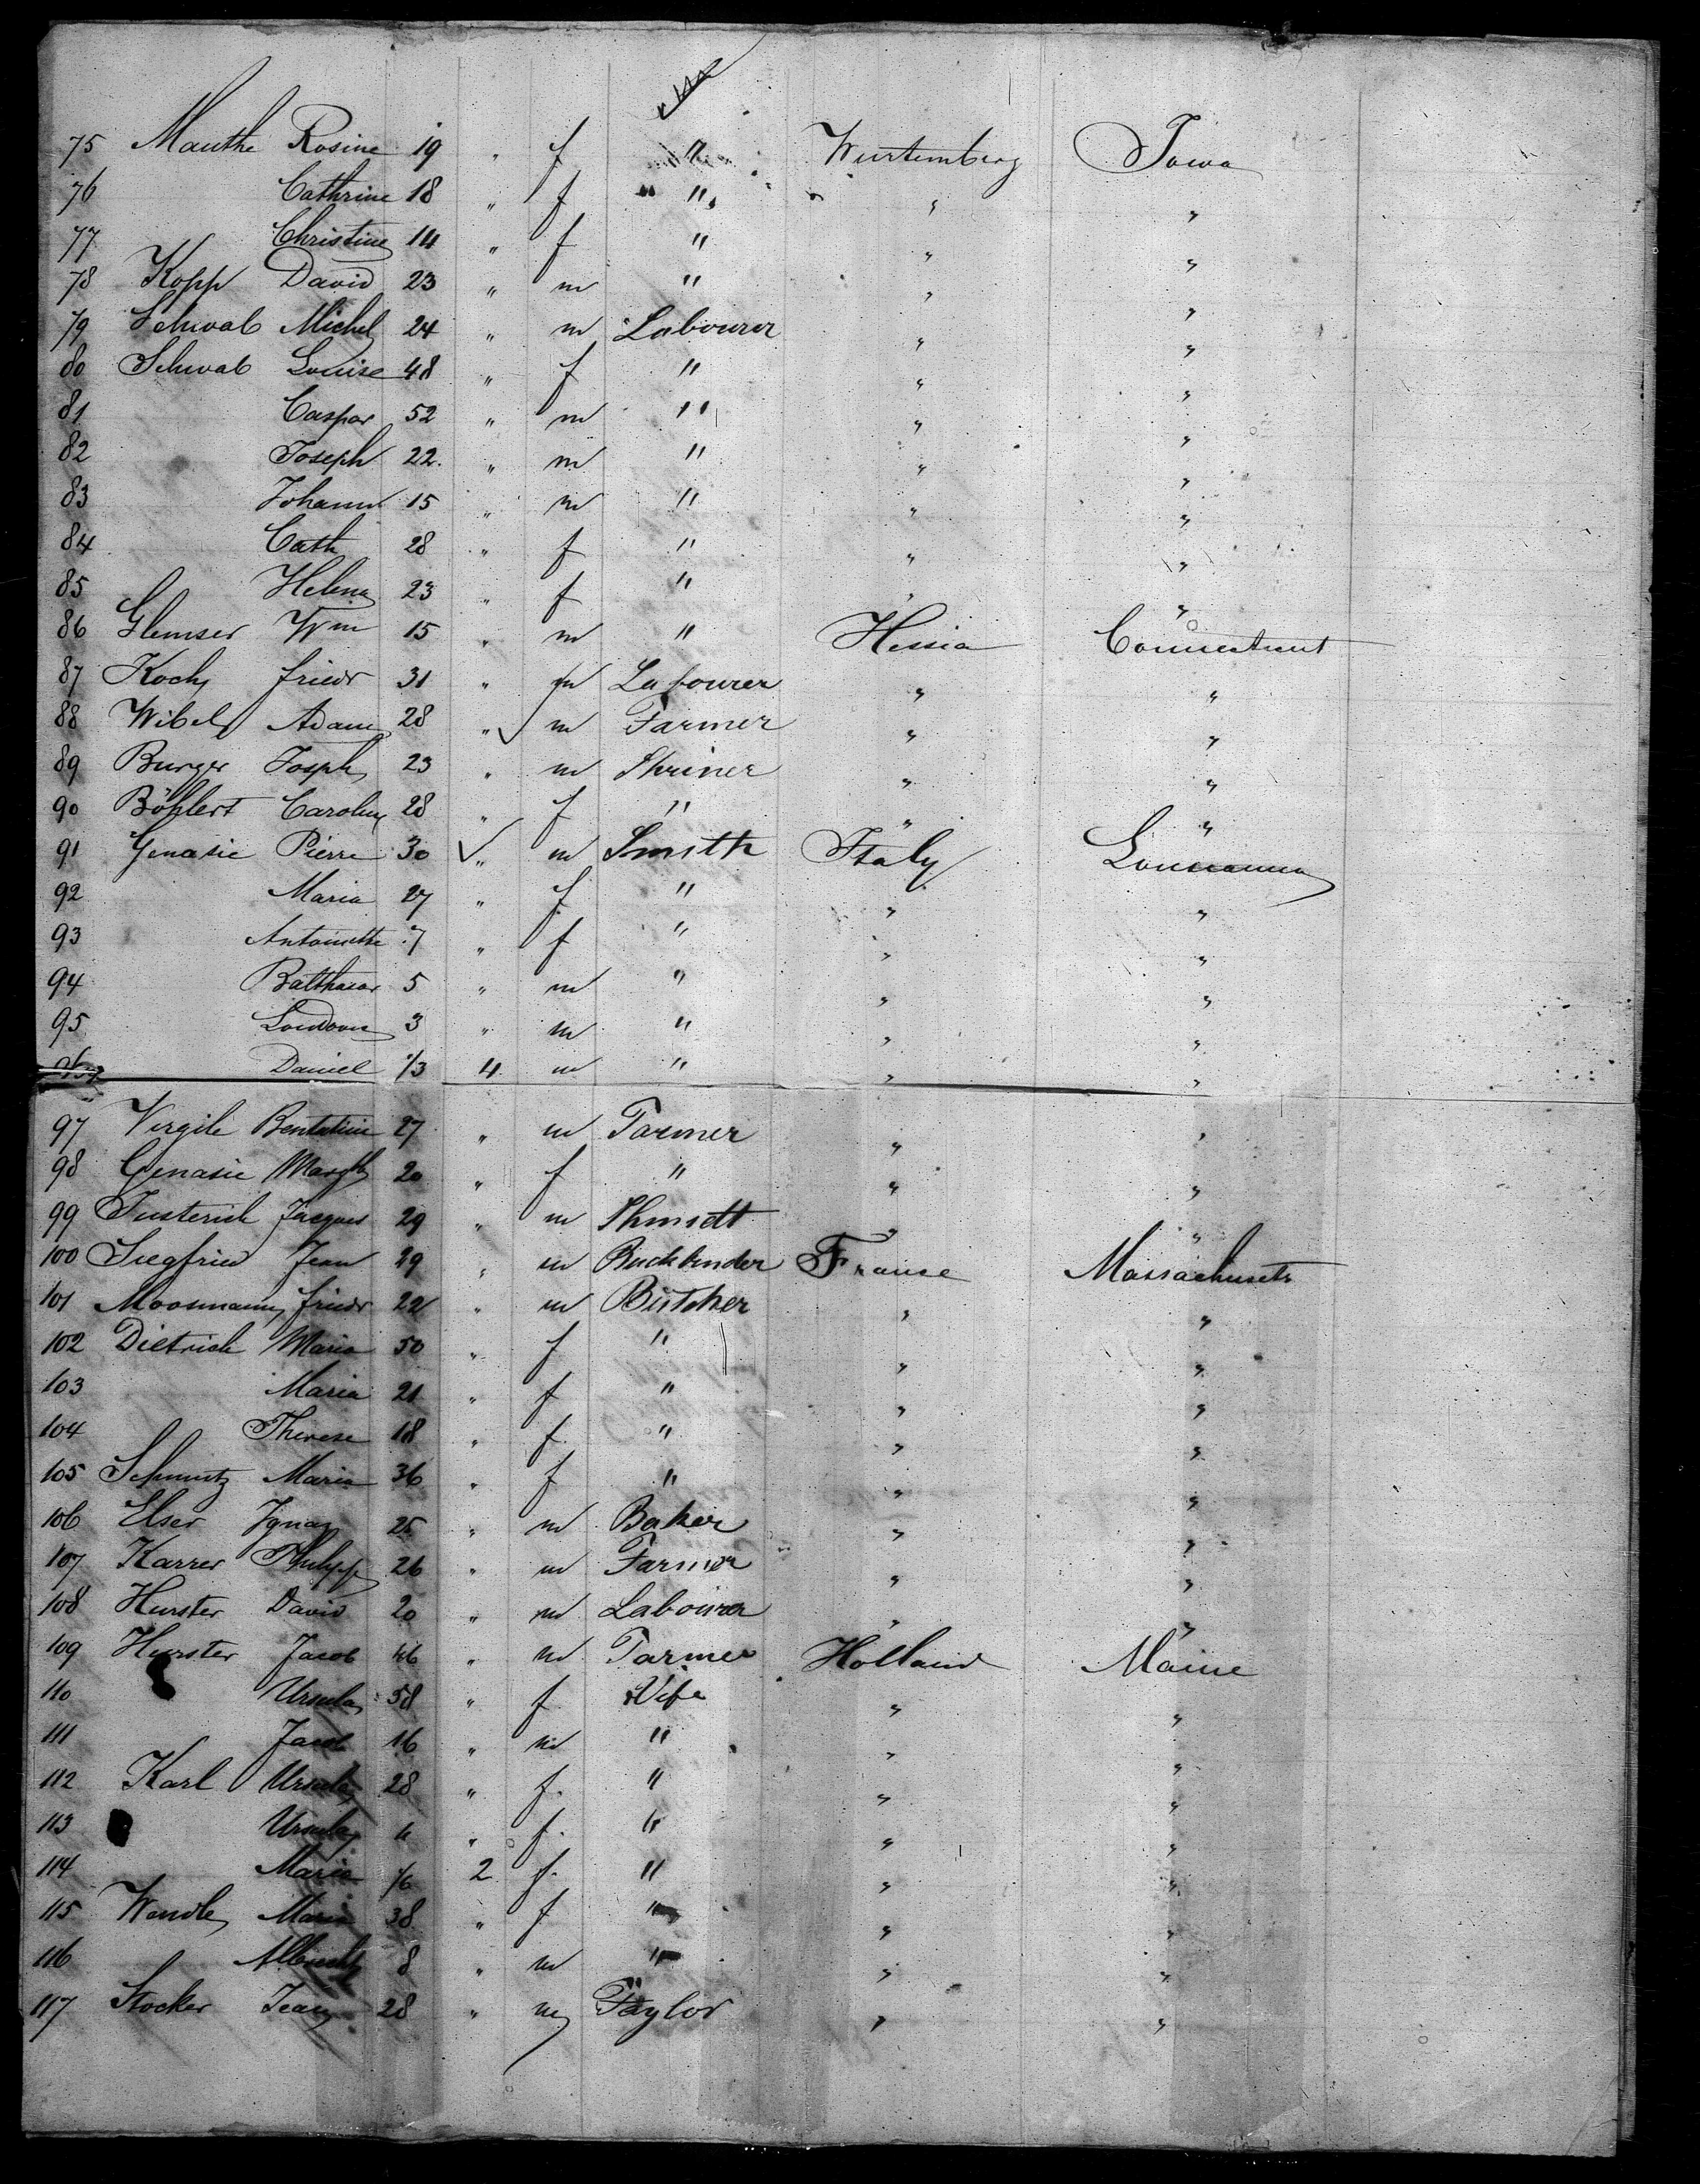 75 Mauthe Rosine 19 " f " Wurtemberg Iowa
76 Cathrine 18 " f " " "
77 Christine 14 " f " " "
78 Kopp David 23 " m " " "
79 Schwab Michel 24 " m Labourer " "
80 Schwab Louise 48 " f " " "
81 Caspar 52 " m " " "
82 Joseph 22 " m " " "
83 Johann 15 " m " " "
84 Cath 28 " f " " "
85 Helena 23 " f " " "
86 Glemser Wm 15 " m " Hessia Connecticut
87 Koch friedr 31 " m Labourer " "
88 Wibel Adam 28 " m Farmer " "
89 Burger Joseph 23 " m Shriner " "
90 Böhlert Caroline 28 " f " " "
91 Genasie Pierre 30 " m Smith Italy Louisianna
92 Maria 27 " f " " "
93 Antoinette 7 " f " " "
94 Balthasar 5 " m " " "
95 3 " m " " "
96 Daniel 1/3 4 m " " "
97 Virgile 27 " m Farmer " "
98 Genasie Margth 20 " f " " "
99 Justerich Jacques 29 " m Shmidt " "
100 Siegfried Jean 29 " m Buckbinder France Massachusets
101 Moosmann friedr 22 " m Butcher " "
102 Dietrich Maria 50 " f " " "
103 Maria 21 " f " " "
104 Therese 18 " f " " "
105 Schmutz Maria 36 " f " " "
106 Elser Ignaz 25 " m Baker " "
107 Karrer Philipp 26 " m Farmer " "
108 Hurster David 20 " m Labourer " "
109 Hurster Jacob 46 " m Farmer Holland Maine
110 Ursula 58 " f Wife " "
111 Jacob 16 " m " " "
112 Karl Ursula 28 " f " " "
113 Ursula 4 " f " " "
114 Maria 1/6 2 f " " "
115 Wendle Maria 38 " f " " "
116 Albrecht 8 " m " " "
117 Stocker Jean 28 " m Taylor " "